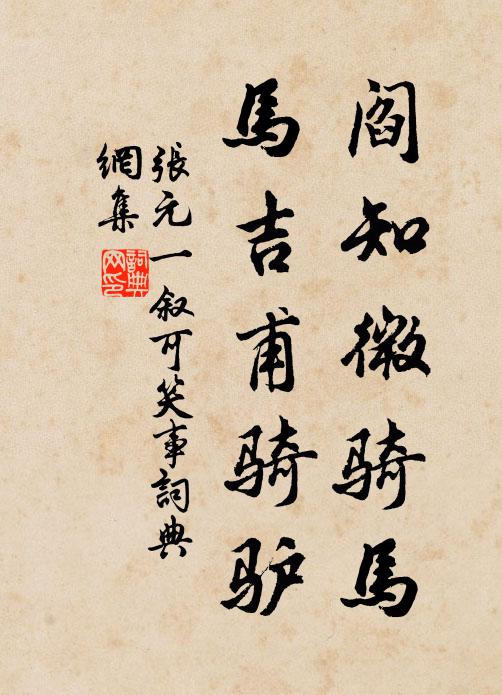 閻知微骑馬
馬吉甫骑驴
張元一叙可笑事詞典
網集
詞典
网印